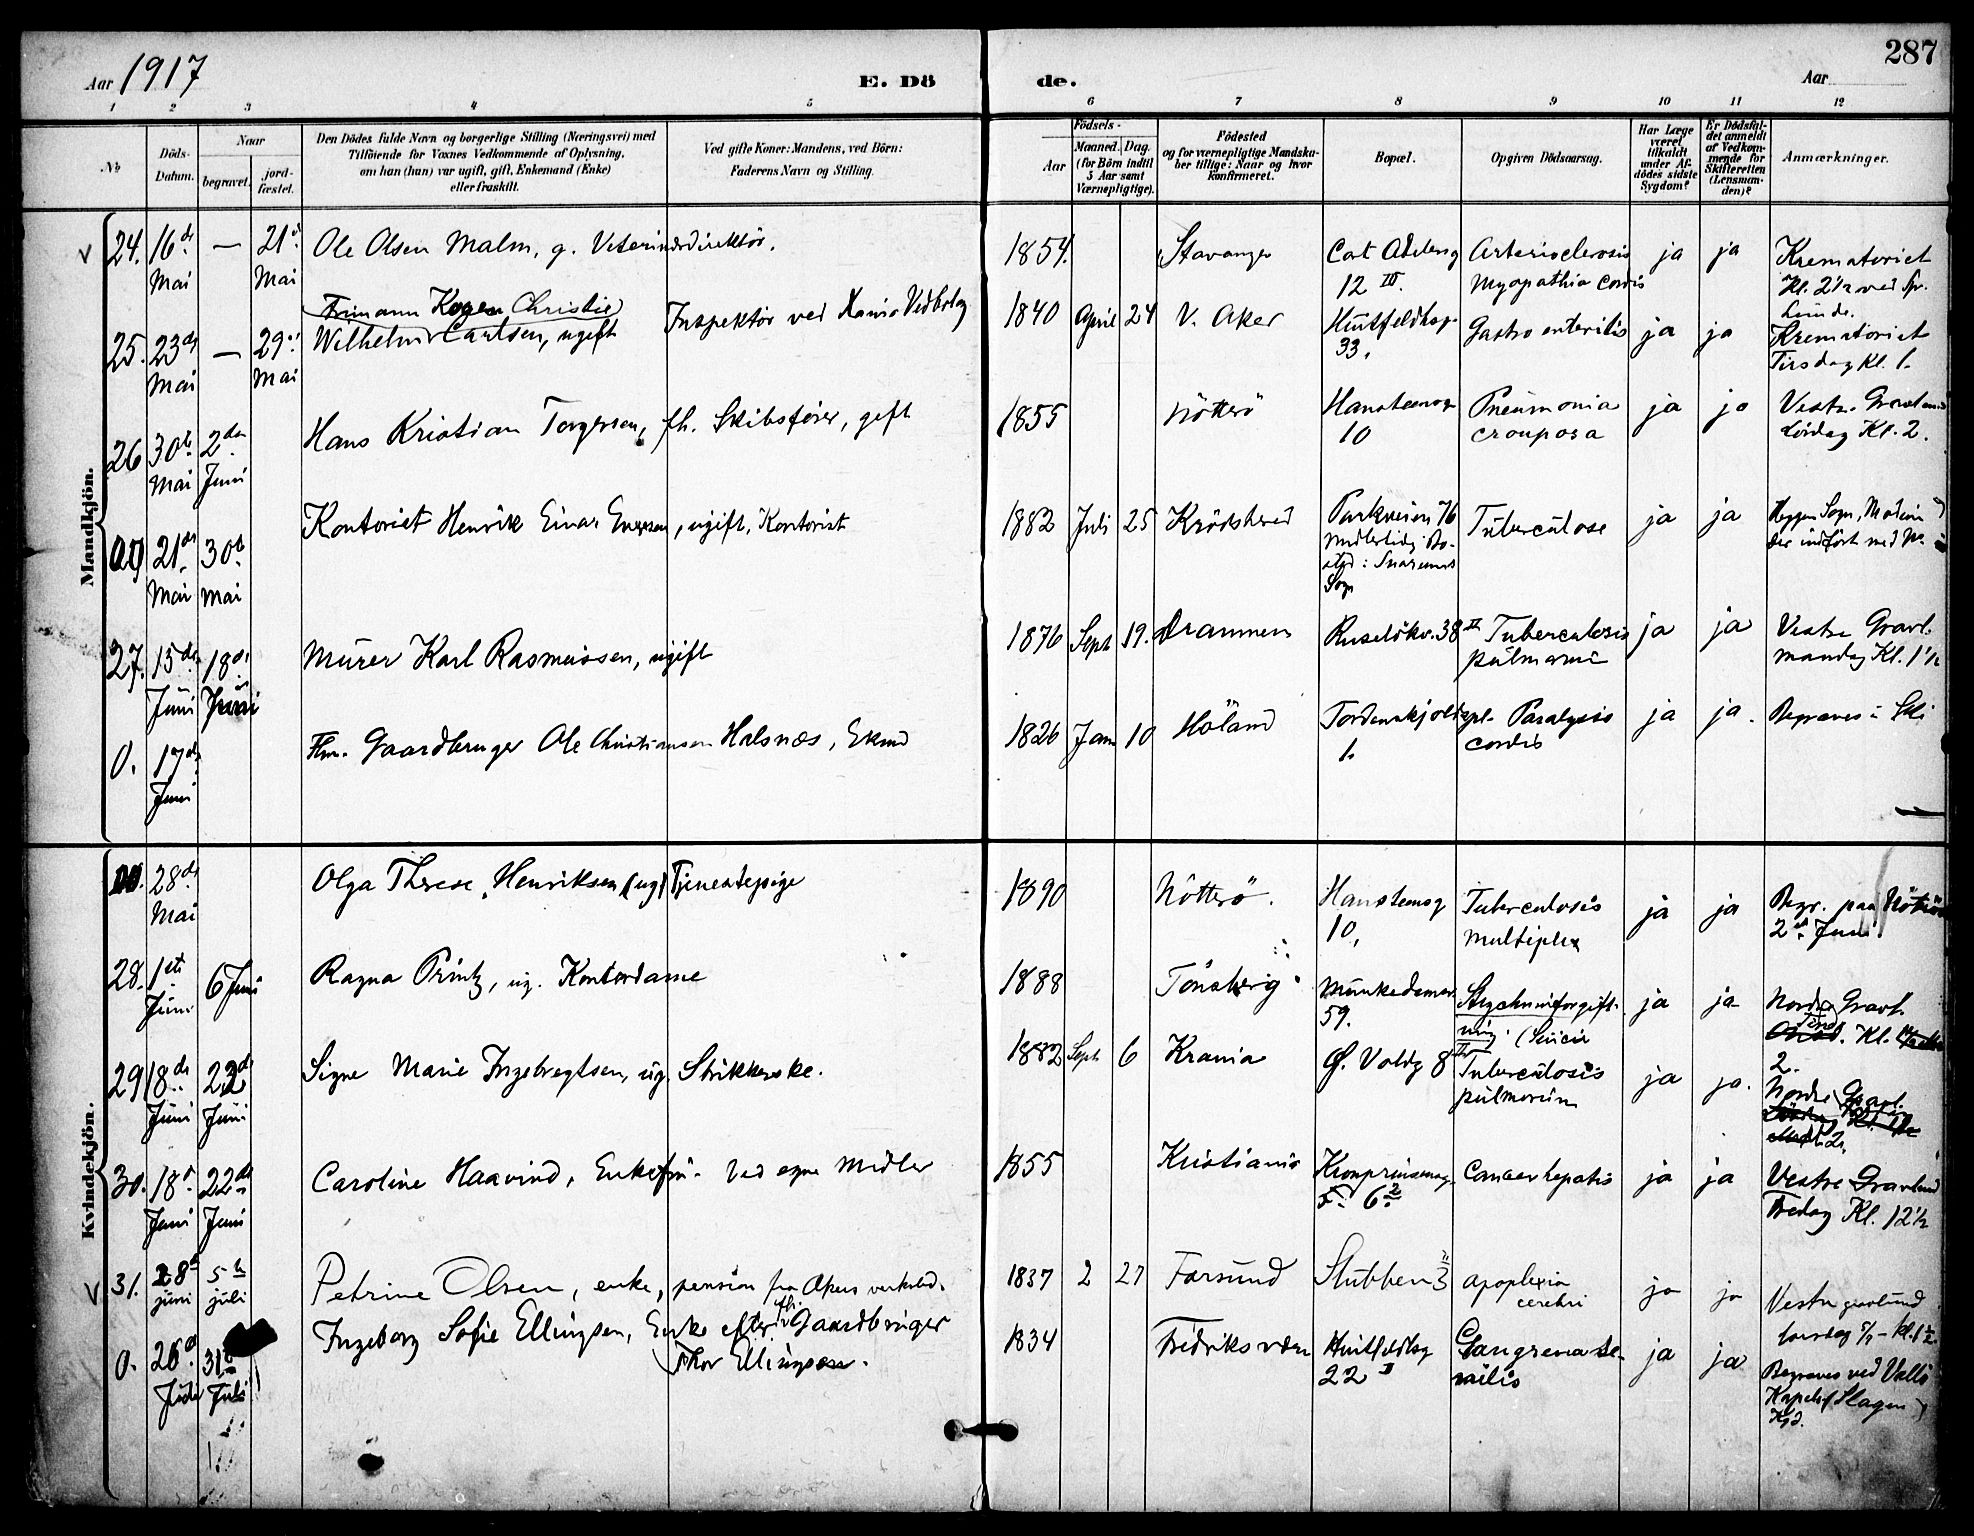 287
Aar 1917
E. Dö
de.
Aar
1 2 3 4 5 6 7 8 9 10 11 12
No
Döds-
Datum.
Naar
begravet.
jord-
fæstet.
Den Dödes fulde Navn og borgerlige Stilling (Næringsvei) med
Tilföiende for Voxnes Vedkommende af Oplysning,
om han (hun) var ugift, gift, Enkemand (Enke)
eller fraskilt.
Ved gifte Koner: Mandens, ved Börn:
Faderens Navn og Stilling.
Födsels-
Aar
Maaned. Dag.
(for Börn indtil
5 Aar samt
Værnepligtige).
Födested
og for værnepligtige Mandska-
ber tillige: Naar og hvor
konfirmeret.
Bopæl.
Opgiven Dödsaarsag.
Har Læge
været
tilkaldt
under Af-
dödes sidste
Sygdom?
Er Dödsfal-
det anmeldt
af Vedkom-
mende for
Skifteretten
(Lensman-
den)?
Anmærkninger.
Mandkjön.
24. 16de Mai — 21de Mai
Ole Olsen Malm, g. Veterinærdirektör.
1854. Stavanger
12 III.
Arteriosclerosis
Myopathia cordis
ja ja
Krematoriet
Kl. 2½ ved Spr.
Linde.
25. 23de Mai — 29de Mai
Frimann Kogen Christie
Wilhelm Carlsen, ugift
Inspektör ved
1840 April 24 V. Aker
Huitfeldtsg.
33.
Gastro enteritis
ja ja
Krematoriet
Tirsdag Kl. 1.
26 30te Mai 2den Juni
Hans Kristian Torgersen, fh. Skibsförer, gift
1855 Nötterö
Hansteensg
10
Pneumonia
crouposa
ja ja
Vestre Gravlund
Lördag Kl. 2.
21de Mai 30te Mai
Kontorist Henrik Einar Evensen, ugift, Kontorist
1882 Juli 25 Krödsherred
Parkveien 76
Midlertidig Bo-
pæl: Snarums
Sogn
Tuberculose
ja ja
Heggen Sogn, Modum
der indfört med No.
27. 15de Juni 18de Juni
Murer Karl Rasmussen, ugift
1876 Sept 19. Drammen
Ruselökv. 38 II
Tuberculosis
pulmonum
ja ja
Vestre Gravl.
mandag Kl. 1½
0. 17de Juni
Fhv. Gaardbruger Ole Christiansen Halsnæs, Ekmd
1826 Jan 10 Höland
Tordenskjoldspl.
1.
Paralysis
cordis
ja ja.
Begraves i Ski
Kvindekjön.
28de Mai
Olga Therese Henriksen (ug) Tjenestepige
1890 Nötterö.
Hansteensg
10,
Tuberculosis
multiplex
ja ja
Begr. paa Nötterö
2den Juni.
28. 1ste Juni 6 Juni
Ragna Printz, ug. Kontordame
1888 Tönsberg
Munkedamsv.
59.
Strychninforgift-
ning. (Suicid
ja ja
Nordre Gravl.
Kl.
2.
29 18de Juni 22de Juni
Signe Marie Ingebregtsen, ug. Strikkerske.
1882 Sept 6 Krania
Ø. Voldg 8
Tuberculosis
pulmonum
ja ja.
Nordre Gravl.
2.
30. 18de Juni 22de Juni
Caroline Haavind, Enkefru. Ved egne Midler
1855 Kristiania
Kronprinsensg.
5 6²
Cancer hepatis
ja ja
Vestre Gravlund
Fredag Kl. 12½
31. 28de juni 5te juli
Petrine Olsen, enke, pension fra Akers verksted.
1837 2 27 Farsund
Stubben 3
apoplexia
cerebri
ja ja
Vestre gravlund
torsdag 5/7 - kl. 1½.
0. 26de 31te Juli
Ingeborg Sofie Ellingsen, Enke efter fh. Gaardbruger
Thor Ellingsen.
1834 Fredriksværn
Huitfeldtsg
22 II
Gangrena se-
nilis
ja ja
Begraves ved Vallö
Kapel (Slagen)